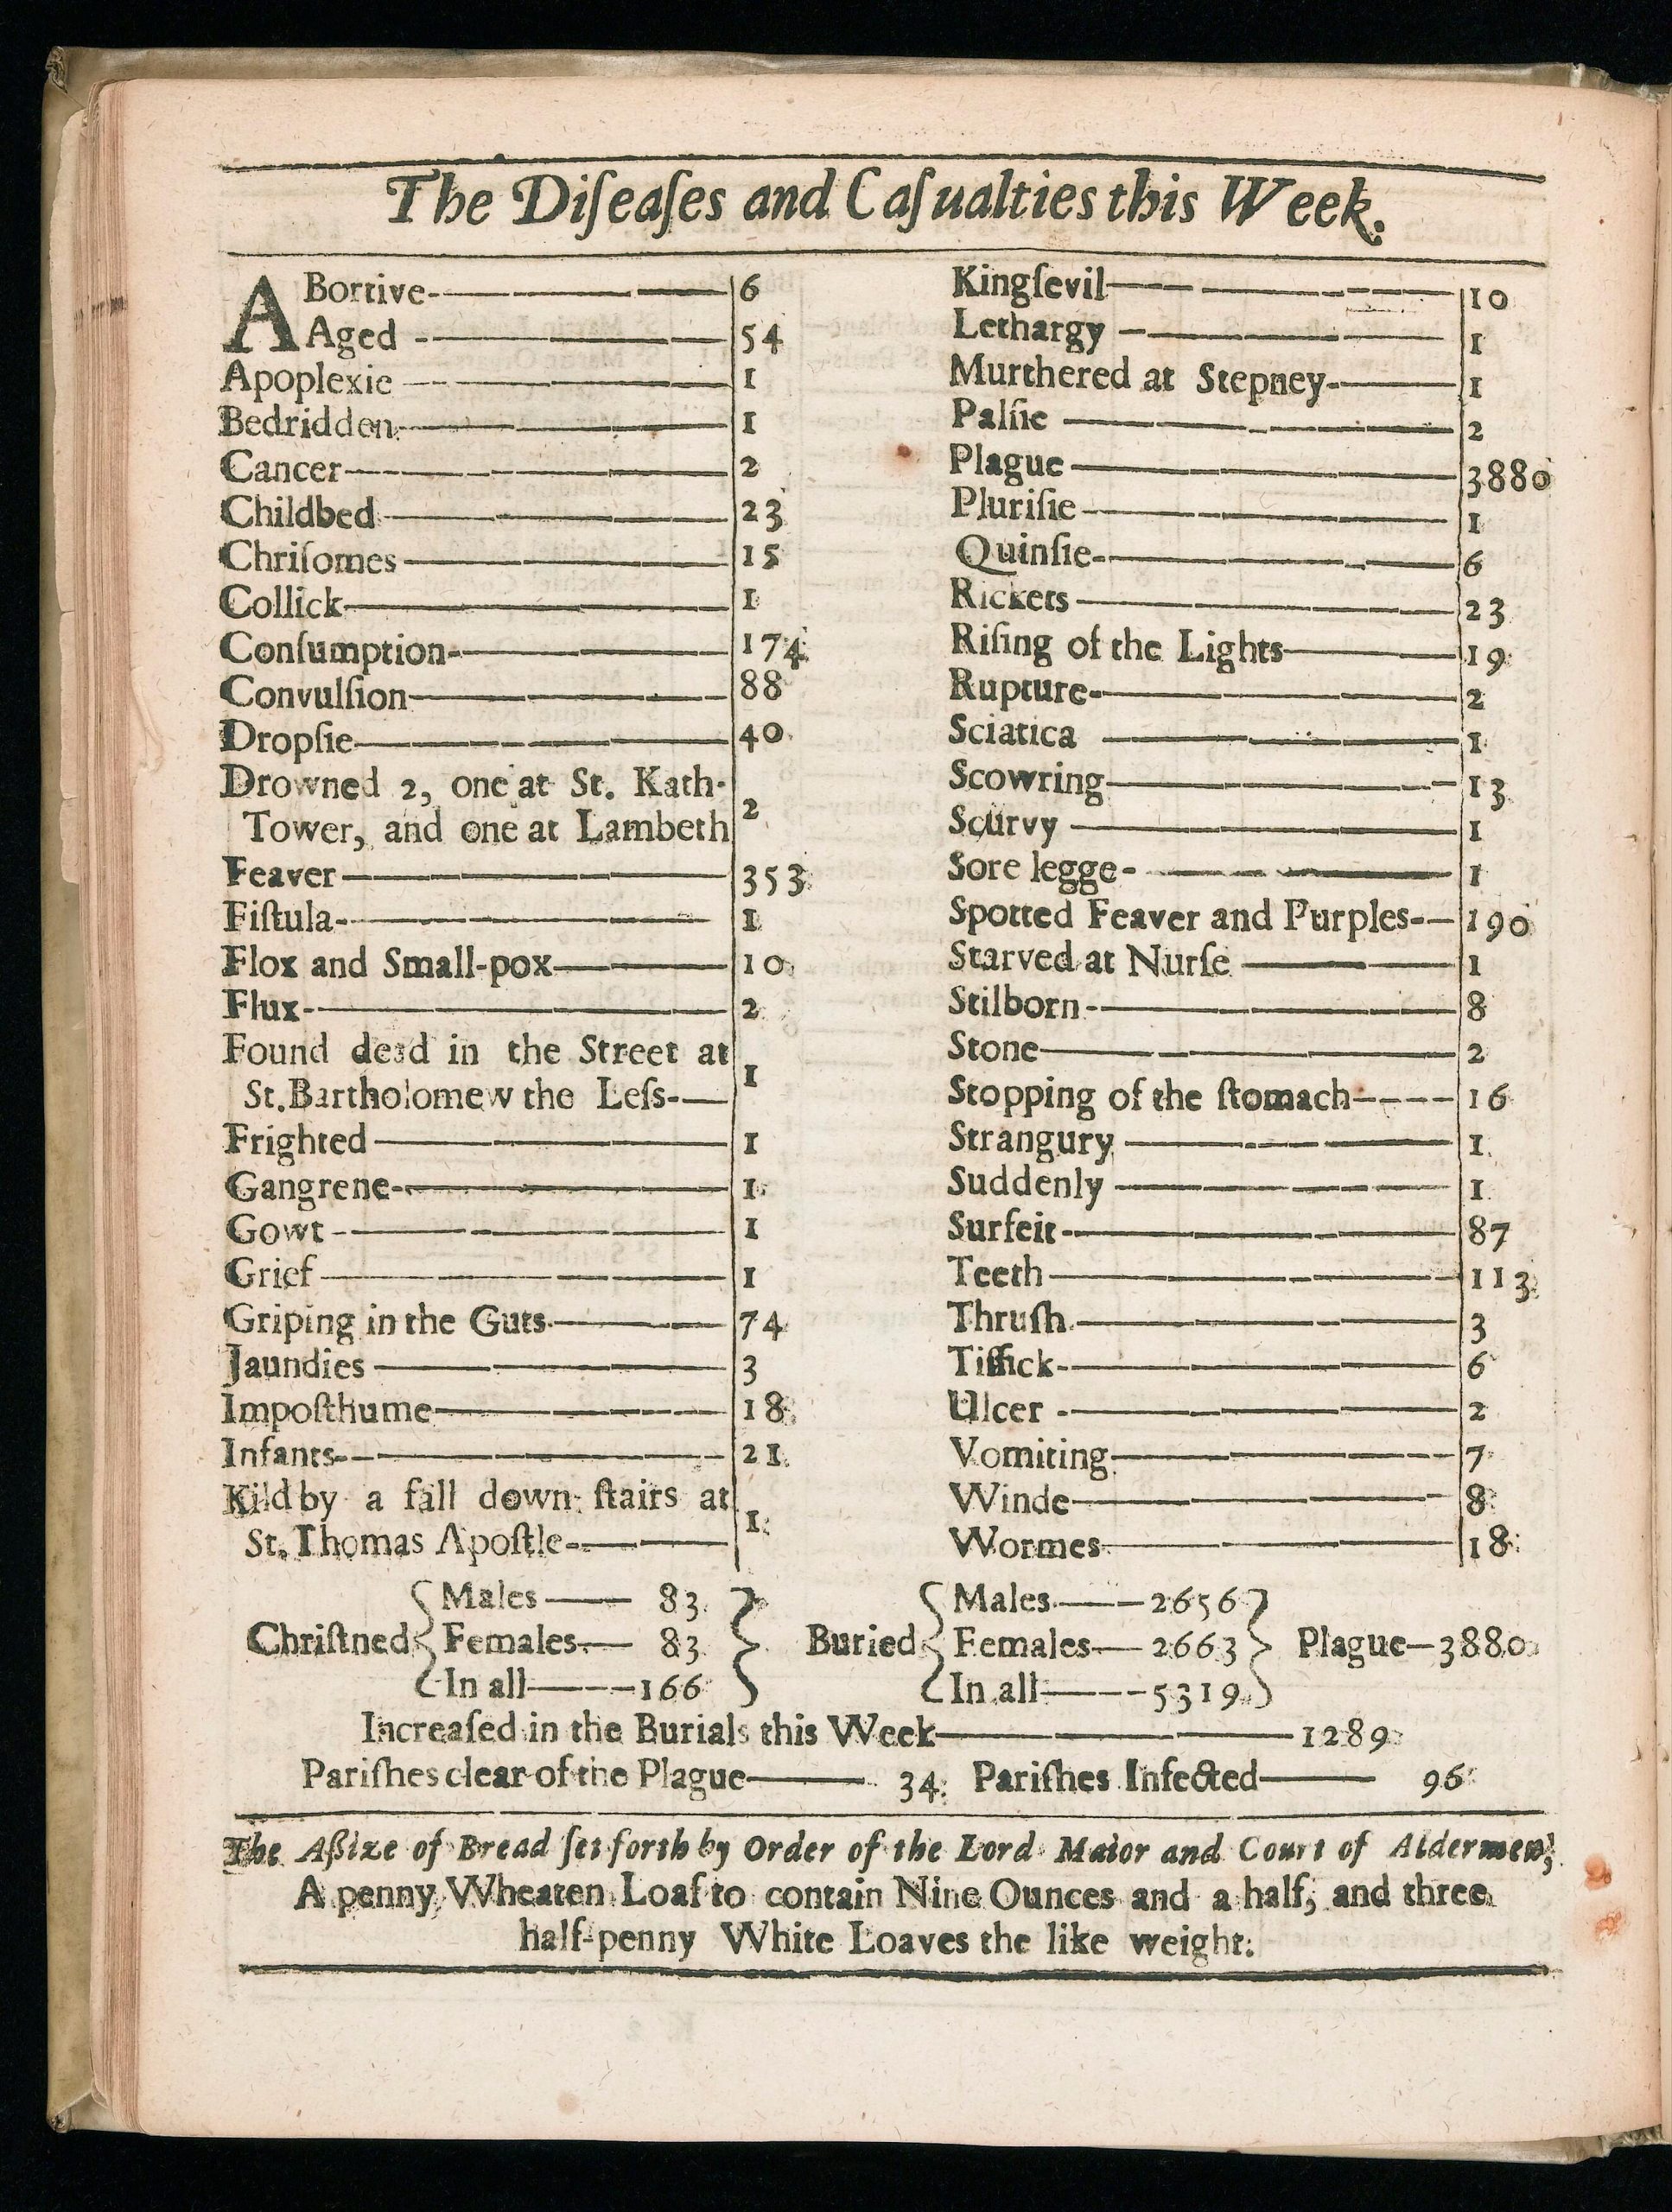 The Diſeaſes and Caſualties this Week.
ABortive 6
Aged 54
Apoplexie 1
Bedridden 1
Cancer 2
Childbed 23
Chriſomes 15
Collick 1
Conſumption 174
Convulſion 88
Dropſie 40
Drowned 2, one at St. Kath-
Tower, and one at Lambeth 2
Feaver 353
Fiſtula 1
Flox and Small-pox 10
Flux 2
Found dead in the Street at
St. Bartholomew the Leſs 1
Frighted 1
Gangrene 1
Gowt 1
Grief 1
Griping in the Guts 74
Jaundies 3
Impoſthume 18
Infants 21
Kild by a fall down ſtairs at
St. Thomas Apoſtle 1
Kingſevil 10
Lethargy 1
Murthered at Stepney 1
Palſie 2
Plague 3880
Pluriſie 1
Quinſie 6
Rickets 23
Riſing of the Lights 19
Rupture 2
Sciatica 1
Scowring 13
Scurvy 1
Sore legge 1
Spotted Feaver and Purples 190
Starved at Nurſe 1
Stilborn 8
Stone 2
Stopping of the ſtomach 16
Strangury 1
Suddenly 1
Surfeit 87
Teeth 113
Thruſh 3
Tiſſick 6
Ulcer 2
Vomiting 7
Winde 8
Wormes 18
Males 83 Males 2656
Chriſtned Females 83 Buried Females 2663 Plague 3880
In all 166 In all 5319
Increaſed in the Burials this Week 1289
Pariſhes clear of the Plague 34 Pariſhes Infected 96
The Aßize of Bread ſet forth by Order of the Lord Maior and Court of Aldermen,
A penny Wheaten Loaf to contain Nine Ounces and a half, and three
half-penny White Loaves the like weight.